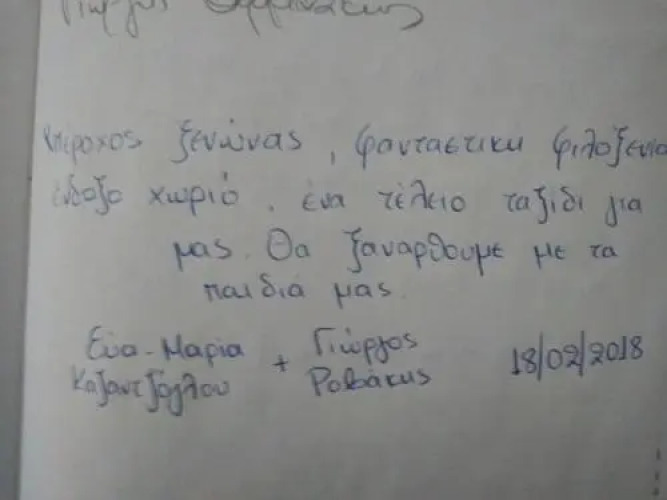 Γιώργος
υπέροχος ξενώνας, φανταστική φιλοξενία
ένδοξο χωριό, ένα τέλειο ταξίδι για
μας. Θα ξαναρθουμε με τα
παιδιά μας.
Εύα-Μαρία + Γιώργος 18/02/2018
Καζαντζόγλου Ροβάκης